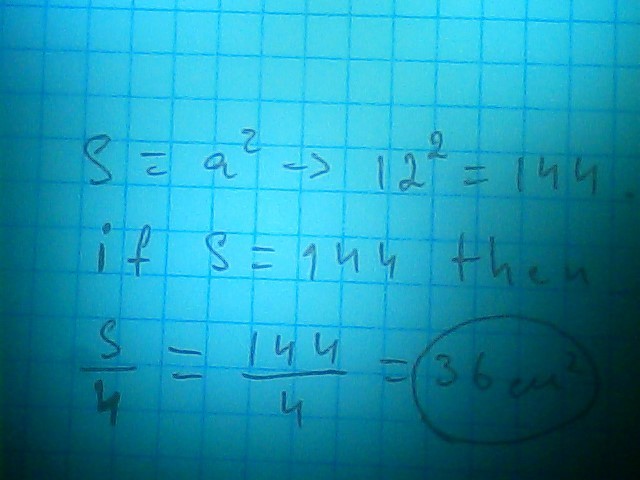 S = a² -> 12² = 144.
if S = 144 then
S/4 = 144/4 = 36 cm²